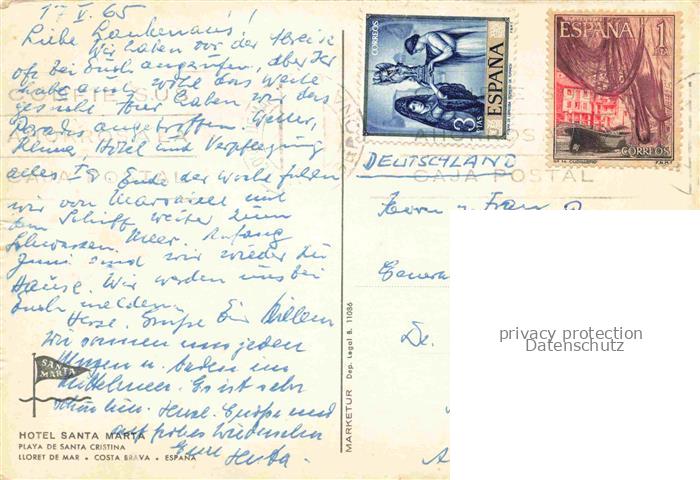 17. V. 65
Liebe
Wir haben vor der Abreise
oft bei Euch angerufen, aber Ihr
habt auch wohl das Weite
gesucht. Hier haben wir das
Paradies angetroffen. Wetter,
Klima, Hotel und Verpflegung
alles Ia. Ende der Woche fahren
wir von Marseille mit
dem Schiff weiter zum
Schwarzen Meer. Anfang
Juni sind wir wieder zu
Hause. Wir werden uns bei
Euch melden.
Herzl. Grüße Ihr Willem
Wir sonnen uns jeden
Morgen u. baden im
Mittelmeer. Es ist sehr
schön hier. Herzl. Grüße und
auf frohes Wiedersehen
Eure Herta.
SANTA
MARTA
HOTEL SANTA MARTA
PLAYA DE SANTA CRISTINA
LLORET DE MAR • COSTA BRAVA • ESPAÑA
MARKETUR Dep. Legal B. 11086
CORREOS
3 PTAS
ESPAÑA
ESPAÑA
1 PTA
CORREOS
CAJA POSTAL
CAJA POSTAL
DEUTSCHLAND
Herrn u. Frau
privacy protection
Datenschutz